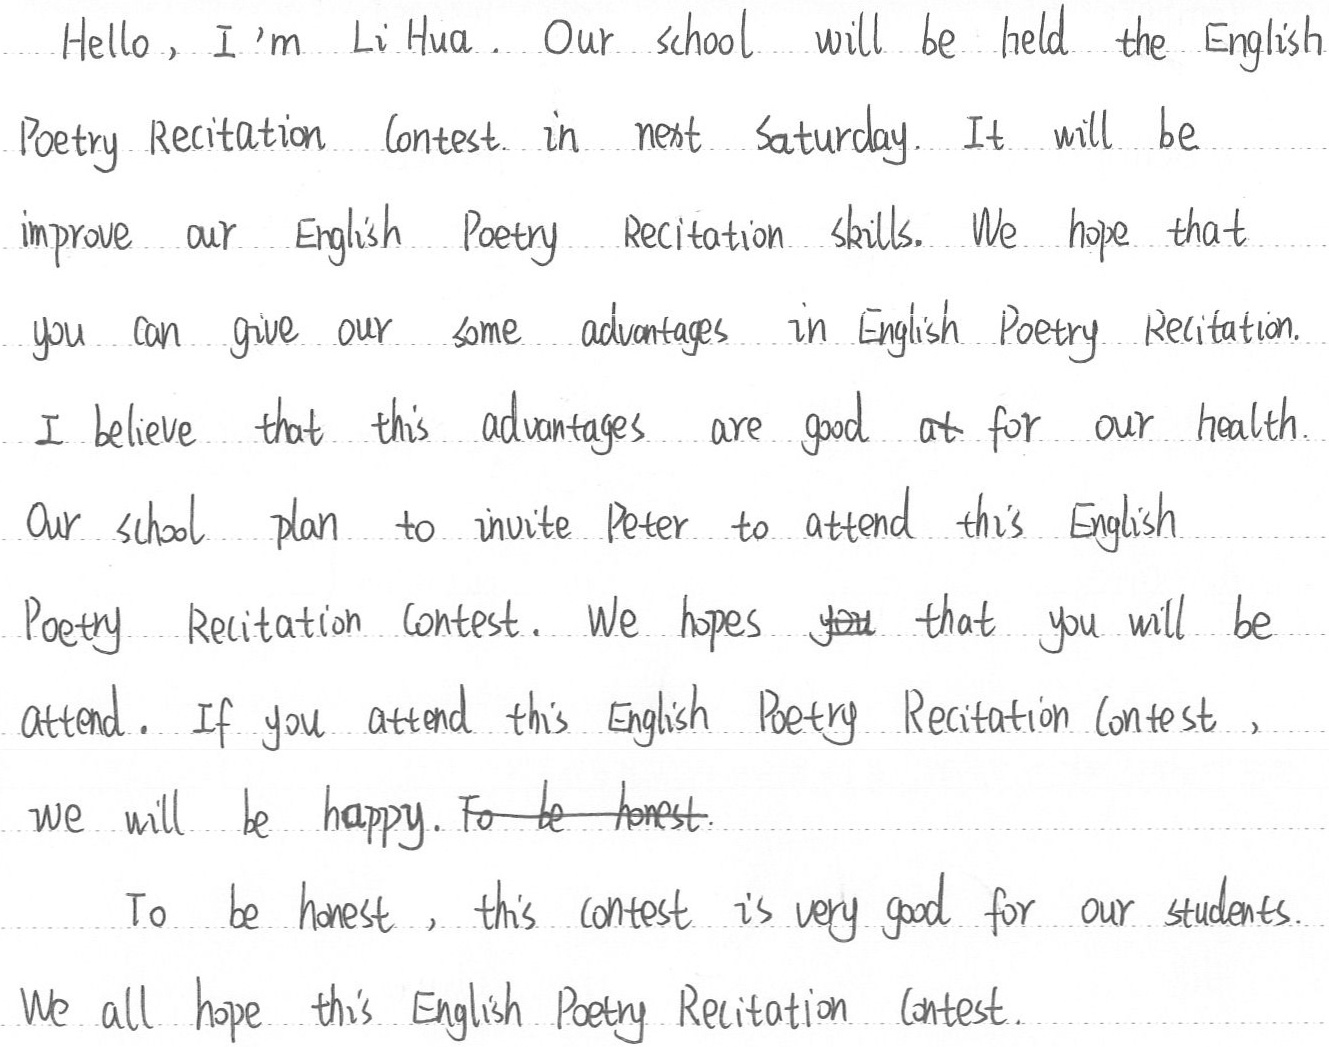 Hello, I'm Li Hua. Our school will be held the English
Poetry Recitation Contest in next Saturday. It will be
improve our English Poetry Recitation skills. We hope that
you can give our some advantages in English Poetry Recitation.
I believe that this advantages are good at for our health.
Our school plan to invite Peter to attend this English
Poetry Recitation Contest. We hopes you that you will be
attend. If you attend this English Poetry Recitation Contest,
we will be happy. To be honest.
To be honest, this contest is very good for our students.
We all hope this English Poetry Recitation Contest.